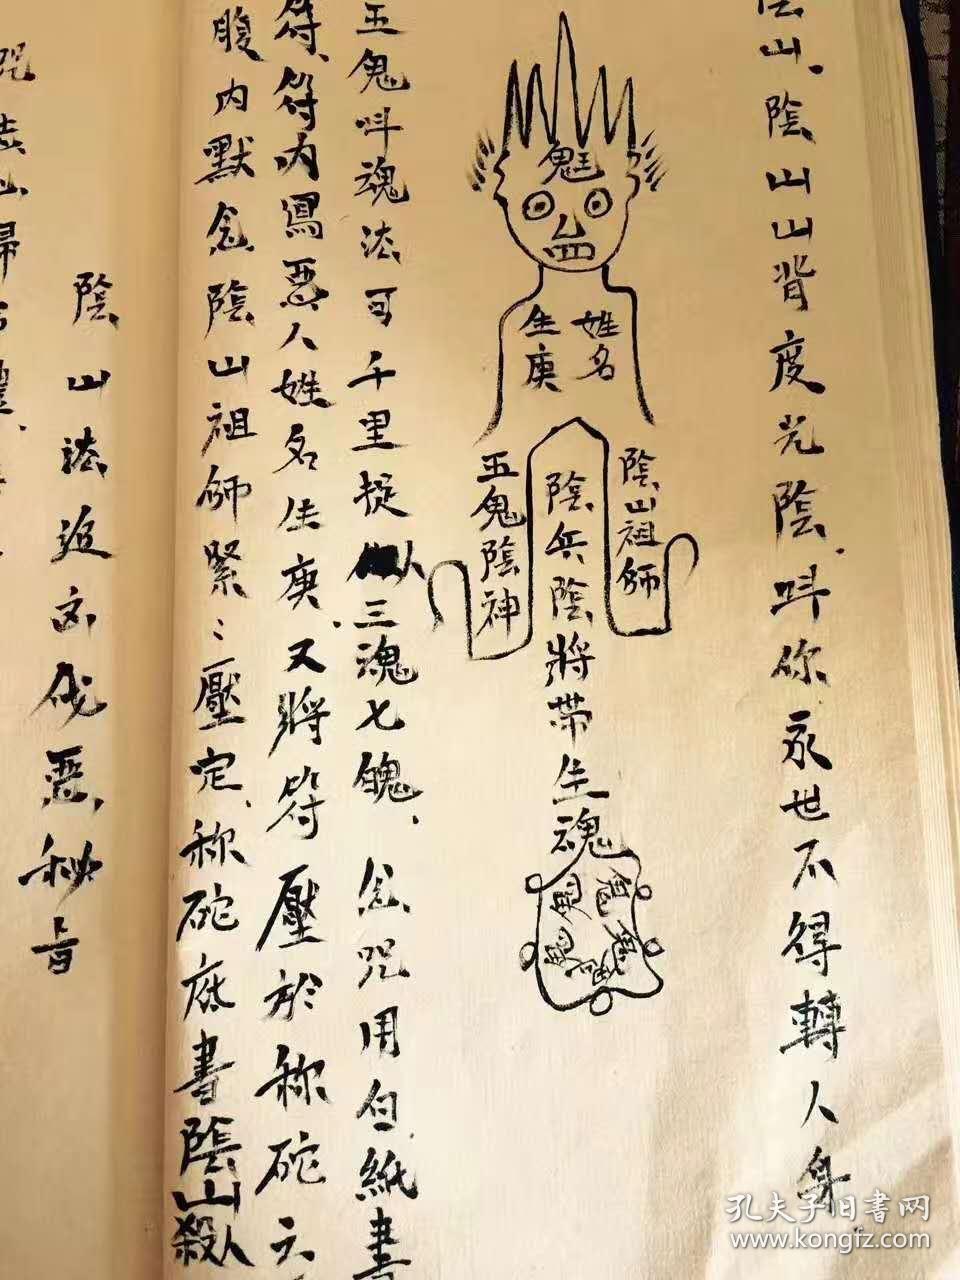 陰山、陰山山背度光陰、呌你永世不得轉人身
魁
姓名
生庚
陰山祖師
陰兵陰將帶生魂
五鬼陰神
鬼
鬼
鬼
鬼
鬼
五鬼呌魂法可千里捉人三魂七魄、念咒用白紙書
符、符内寫惡人姓名生庚、又將符壓於称砣之
腹内默念陰山祖師緊緊壓定、称砣底書陰山殺人
陰山法追凶伐惡秘旨
孔夫子旧書网
www.kongfz.com